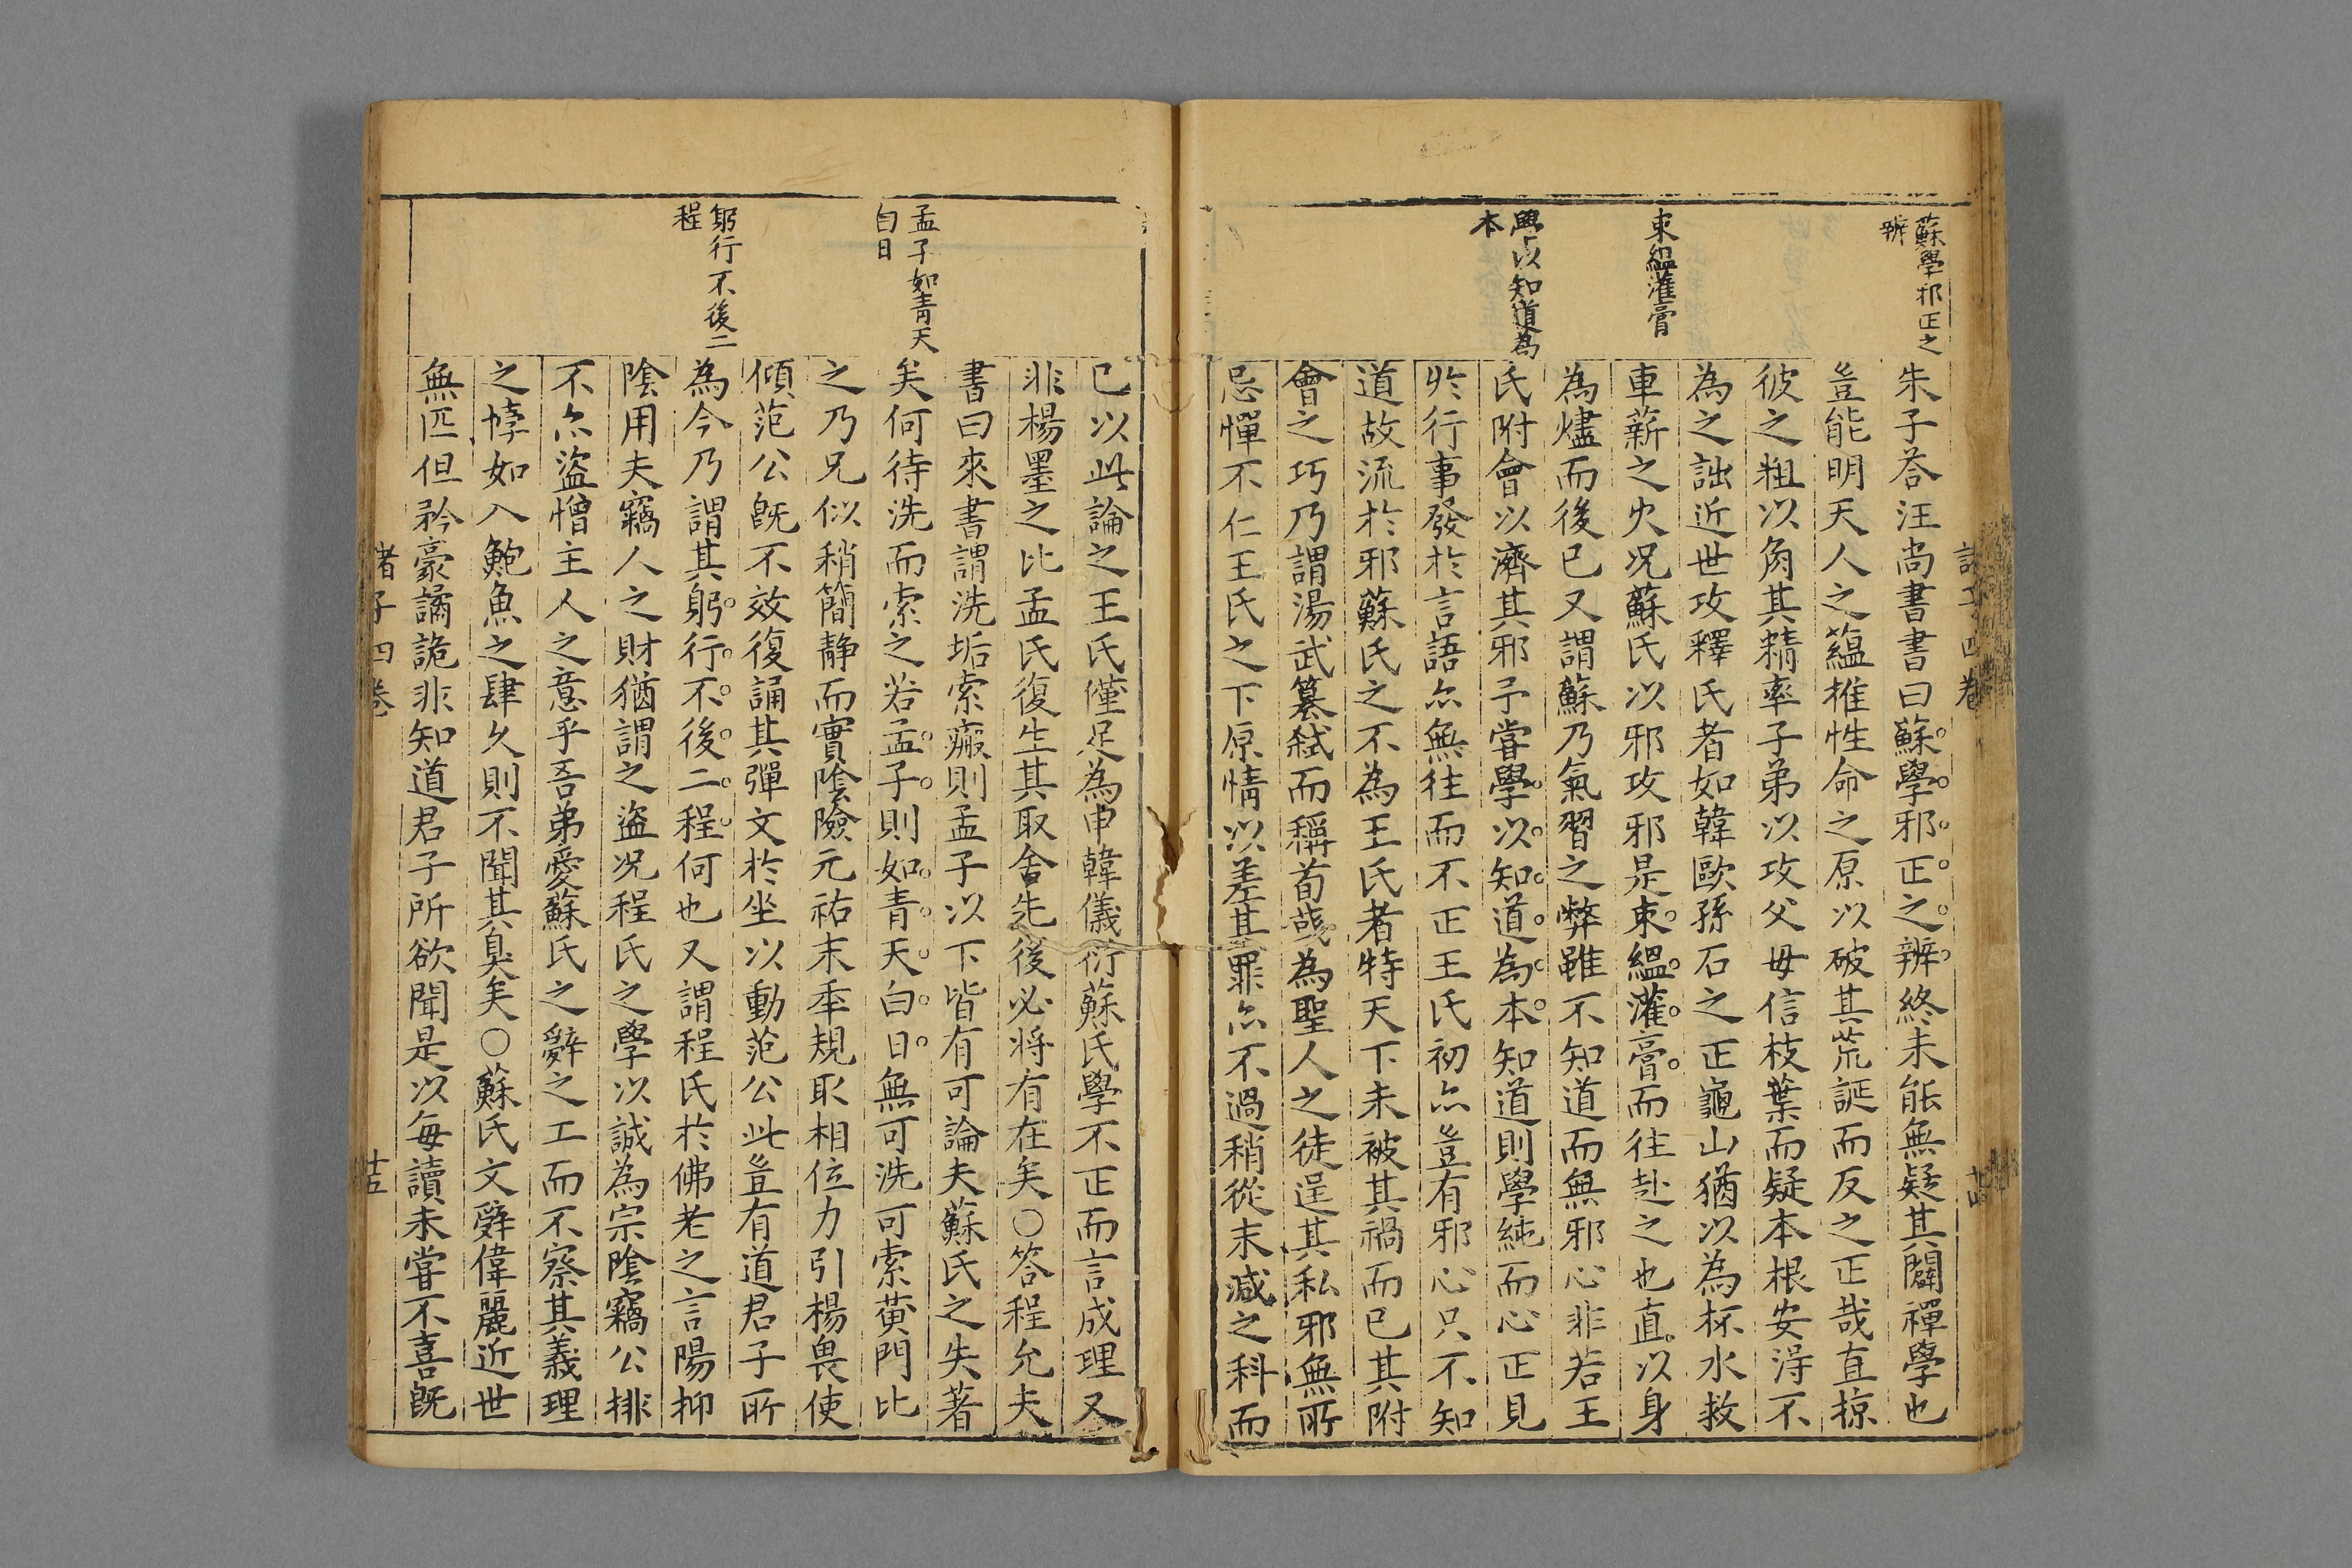 蘇學邪正之
辨
朱子荅汪尚書書曰蘇學邪正之辨終未能無疑其闢禪學也
豈能明天人之蘊推性命之原以破其荒誕而反之正哉直掠
彼之粗以角其精率子弟以攻父毋信枝葉而疑本根安淂不
為之詘近世攻釋氏者如韓歐孫石之正龜山猶以為杯水救
束緼灌膏
車薪之火况蘇氏以邪攻邪是束緼灌膏而往赴之也直以身
為燼而後已又謂蘇乃氣習之弊雖不知道而無邪心非若王
學以知道為
本
氏附會以濟其邪予甞學以知道為本知道則學純而心正見
於行事發於言語亦無往而不正王氏初亦豈有邪心只不知
道故流於邪蘇氏之不為王氏者特天下未被其禍而已其附
會之巧乃謂湯武篡弑而稱荀彧為聖人之徒逞其私邪無所
忌憚不仁王氏之下原情以差其罪亦不過稍從末减之科而
已以此論之王氏僅足為申韓儀衍蘇氏學不正而言成理又
非楊墨之比孟氏復生其取舍先後必将有在矣○答程允夫
書曰來書謂洗垢索瘢則孟子以下皆有可論夫蘇氏之失著
孟子如青天
白日
矣何待洗而索之若孟子則如青天白日無可洗可索黄門比
之乃兄似稍簡静而實陰險元祐末年規取相位力引楊畏使
傾范公旣不效復誦其彈文於坐以動范公此豈有道君子所
躬行不後二
程
為今乃謂其躬行不後二程何也又謂程氏於佛老之言陽抑
陰用夫竊人之財猶謂之盗况程氏之學以誠為宗陰竊公排
不亦盗憎主人之意乎吾弟愛蘇氏之辭之工而不察其義理
之悖如入鮑魚之肆久則不聞其臭矣○蘇氏文辭偉麗近世
無匹但矜豪譎詭非知道君子所欲聞是以每讀未甞不喜旣
者子四卷